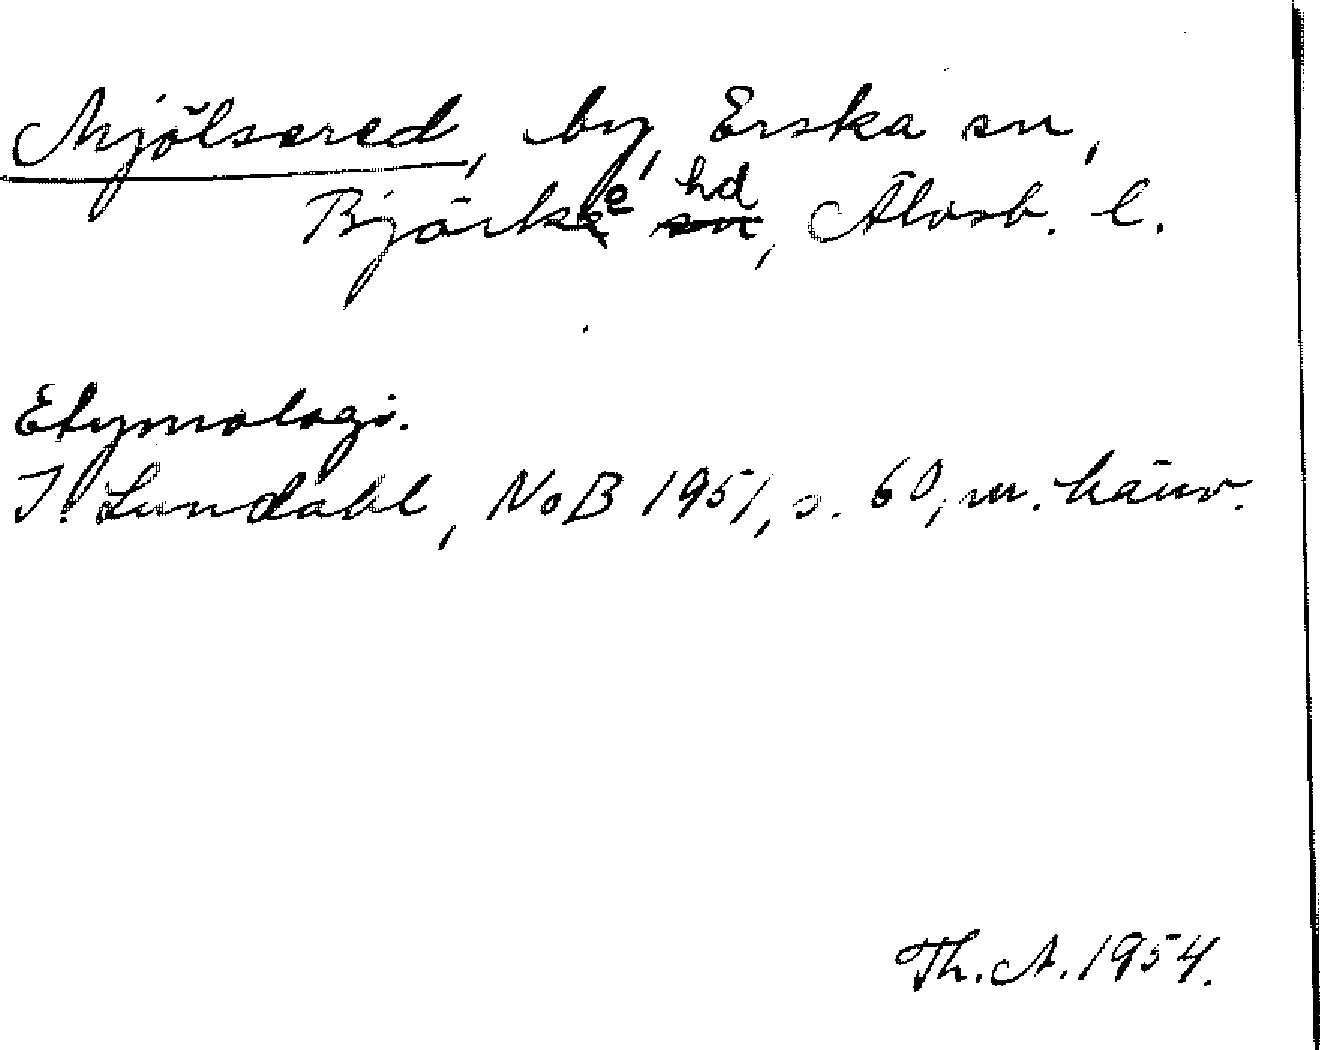 Mjölsered, by, Erska sn,
Bjärke hd, Älvsb. l.
Etymologi.
I. Lundahl, NoB 1951, s. 60, m. hänv.
Th. A. 1954.